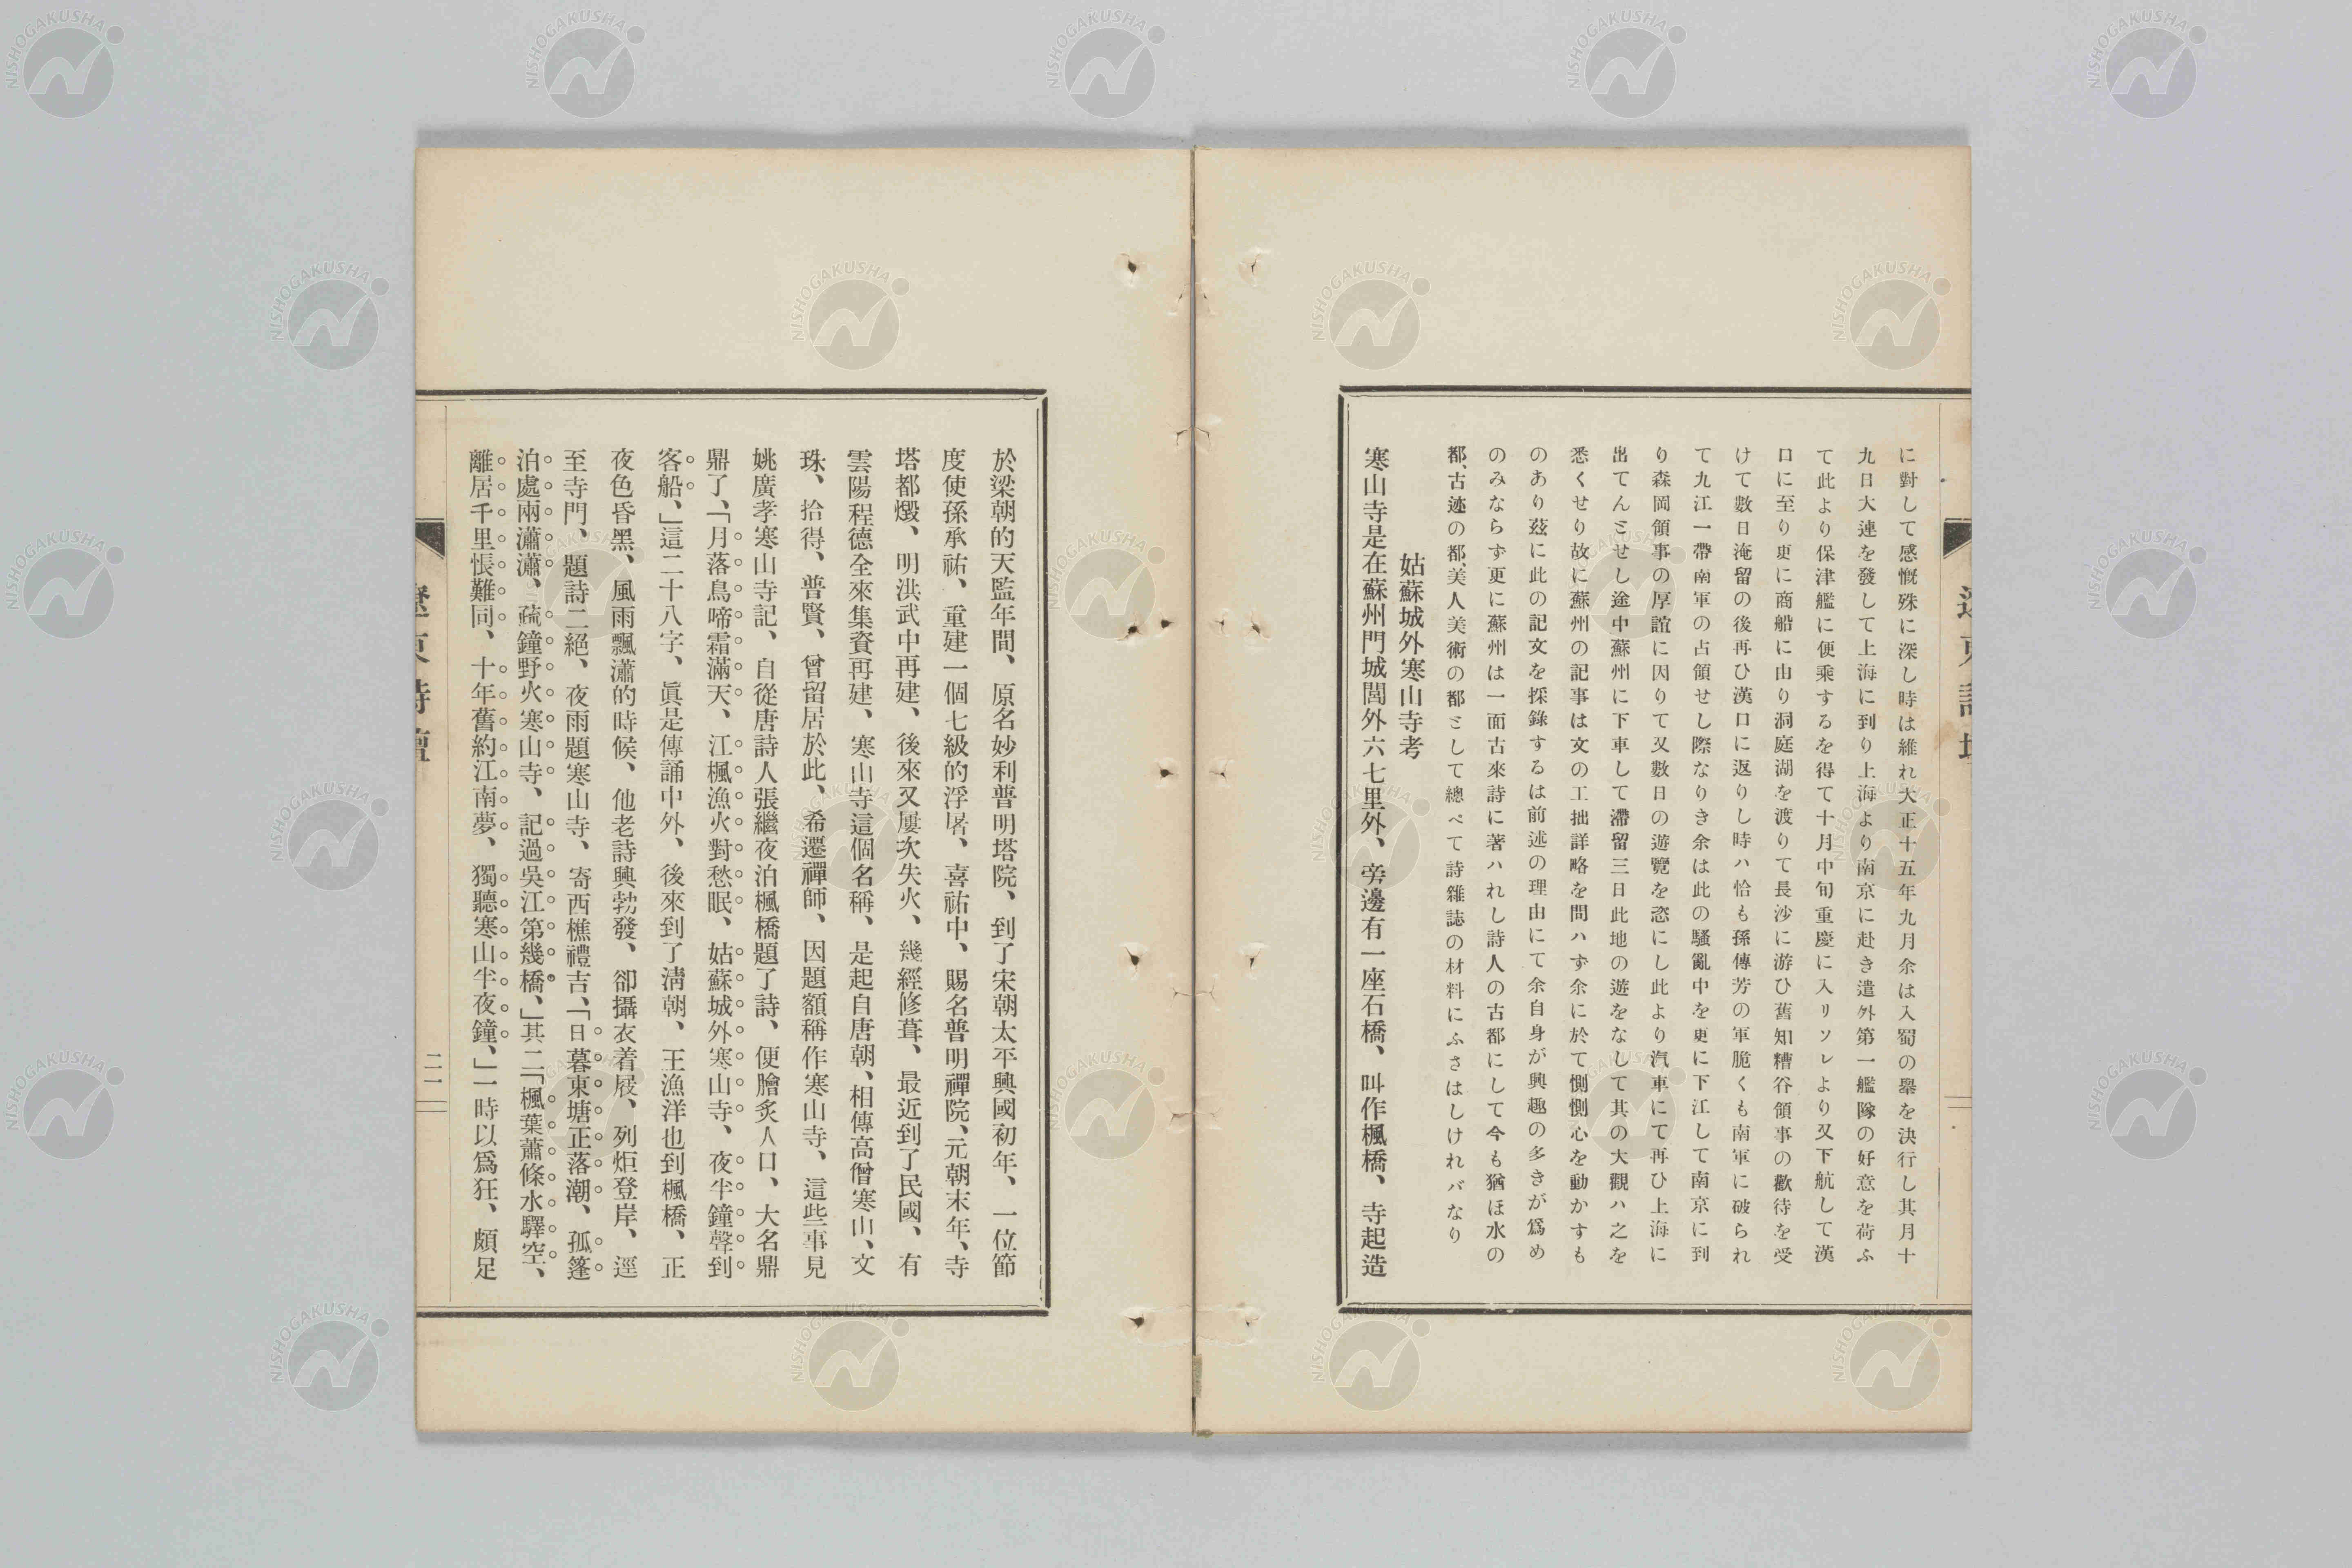 に對して感慨殊に深し時は維れ大正十五年九月余は入蜀の擧を決行し其月十
九日大連を發して上海に到り上海より南京に赴き遣外第一艦隊の好意を荷ふ
て此より保津艦に便乘するを得て十月中旬重慶に入リソレより又下航して漢
口に至り更に商船に由り洞庭湖を渡りて長沙に游ひ舊知糟谷領事の歡待を受
けて數日淹留の後再ひ漢口に返りし時ハ恰も孫傳芳の軍脆くも南軍に破られ
て九江一帶南軍の占領せし際なりき余は此の騷亂中を更に下江して南京に到
り森岡領事の厚誼に因りて又數日の遊覽を恣にし此より汽車にて再ひ上海に
出てんとせし途中蘇州に下車して滯留三日此地の遊をなして其の大觀ハ之を
悉くせり故に蘇州の記事は文の工拙詳略を問ハず余に於て惻惻心を動かすも
のあり玆に此の記文を採錄するは前述の理由にて余自身が興趣の多きが爲め
のみならず更に蘇州は一面古來詩に著ハれし詩人の古都にして今も猶ほ水の
都、古迹の都、美人美術の都として總べて詩雜誌の材料にふさはしけれバなり
姑蘇城外寒山寺考
寒山寺是在蘇州門城閶外六七里外、旁邊有一座石橋、叫作楓橋、寺起造
於梁朝的天監年間、原名妙利普明塔院、到了宋朝太平興國初年、一位節
度使孫承祐、重建一個七級的浮堦、喜祐中、賜名普明禪院、元朝末年、寺
塔都燬、明洪武中再建、後來又屢次失火、幾經修葺、最近到了民國、有
雲陽程德全來集資再建、寒山寺這個名稱、是起自唐朝、相傳高僧寒山、文
珠、拾得、普賢、曾留居於此、希遷禪師、因題額稱作寒山寺、這些事見
姚廣孝寒山寺記、自從唐詩人張繼夜泊楓橋題了詩、便膾炙人口、大名鼎
鼎了、「月落烏啼霜滿天、江楓漁火對愁眠、姑蘇城外寒山寺、夜半鐘聲到
客船、」這二十八字、眞是傳誦中外、後來到了淸朝、王漁洋也到楓橋、正
夜色昏黑、風雨飄瀟的時候、他老詩興勃發、卻攝衣着屐、列炬登岸、逕
至寺門、題詩二絕、夜雨題寒山寺、寄西樵禮吉、「日暮東塘正落潮、孤篷
泊處雨瀟瀟、疏鐘野火寒山寺、記過吳江第幾橋、」其二「楓葉蕭條水驛空、
離居千里悵難同、十年舊約江南夢、獨聽寒山半夜鐘、」一時以爲狂、頗足
二一